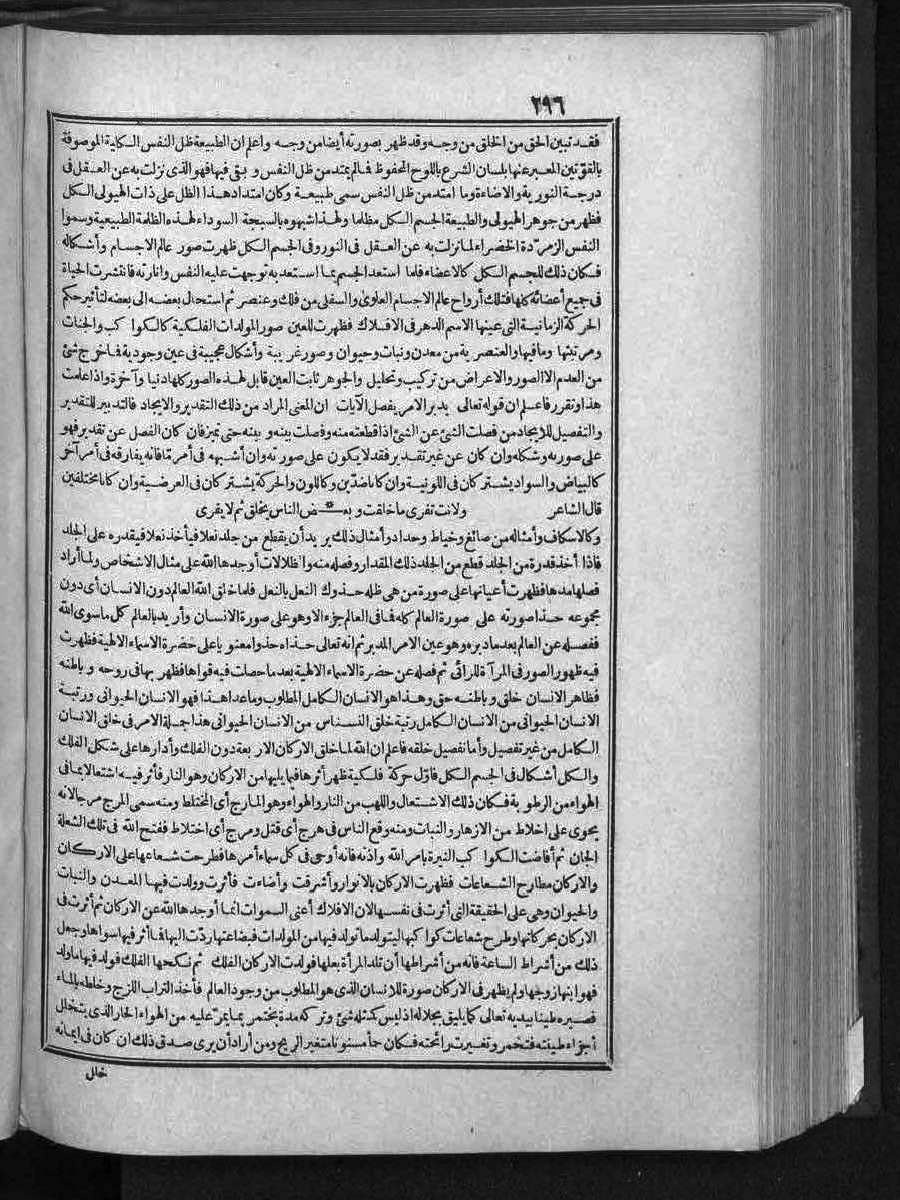 ٢٩٦
فقد تبين الحق من الخلق من وجه وقد ظهر بصورته أيضا من وجه واعلم ان الطبيعة ظل النفس الكلية الموصوفة
بالقوتين المعبر عنها بلسان الشرع باللوح المحفوظ فما لم يمتد من ظل النفس وبقى فيها فهو الذى نزلت به عن العقل فى
درجة النورية والاضاءة وما امتد من ظل النفس سمى طبيعة وكان امتداد هذا الظل على ذات الهيولى الكل
فظهر من جوهر الهيولى والطبيعة الجسم الكل مظلما ولهذا شبهوه بالسبجة السوداء لهذه الظلمة الطبيعية وسموا
النفس الزمردة الخضراء لما نزلت به عن العقل فى النور وفى الجسم الكل ظهرت صور عالم الاجسام وأشكاله
فكان ذلك للجسم الكل كالاعضاء فلما استعد الجسم بما استعد به توجهت عليه النفس وانارته فانتشرت الحياة
فى جميع أعضائه كلها فتلك أرواح عالم الاجسام العلوى والسفلى من فلك وعنصر ثم استحال بعضه الى بعضه لتأثير حكم
الحركة الزمانية التى عينها الاسم الدهر فى الافلاك فظهرت للعين صور المولدات الفلكية كالكواكب والجنات
ومرتبتها وما فيها والعنصرية من معدن ونبات وحيوان وصور غريبة وأشكال عجيبة فى عين وجودية فما خرج شئ
من العدم الا الصور والاعراض من تركيب وتحليل والجوهر ثابت العين قابل لهذه الصور كلها دنيا وآخرة واذا علمت
هذا وتقرر فاعلم ان قوله تعالى يدبر الامر يفصل الآيات ان المعنى المراد من ذلك التقدير والايجاد فالتدبير للتقدير
والتفصيل للايجاد من فصلت الشئ عن الشئ اذا قطعته منه وفصلت بينه وبينه حتى تميز فان كان الفصل عن تقدير فهو
على صورته وشكله وان كان عن غير تقدير فقد لا يكون على صورته وان أشبهه فى أمر ما فانه يفارقه فى أمر آخر
كالبياض والسواد يشتركان فى اللونية وان كانا ضدين وكاللون والحركة يشتركان فى العرضية وان كانا مختلفين
قال الشاعر ولانت تفرى ما خلقت وبعـ * ـض الناس يخلق ثم لا يفرى
وكالاسكاف وأمثاله من صائغ وخياط وحداد وأمثال ذلك يريد أن يقطع من جلد نعلا فيأخذ نعلا فيقدره على الجلد
فاذا أخذ قدره من الجلد قطع من الجلد ذلك المقدار وفصله منه والظلالات أوجدها الله على مثال الاشخاص ولما أراد
فصلها مدها فظهرت أعيانها على صورة من هى ظله حذوك النعل بالنعل فلما خلق الله العالم دون الانسان أى دون
مجموعه حذا صورته على صورة العالم كله فما فى العالم جزء الا وهو على صورة الانسان وأريد بالعالم كل ما سوى الله
ففصله عن العالم بعد ما دبره وهو عين الامر المدبر ثم انه تعالى حذاه حذوا معنويا على حضرة الاسماء الالهية فظهرت
فيه ظهور الصور فى المرآة للرائى ثم فصله عن حضرة الاسماء الالهية بعد ما حصلت فيه قواها فظهر بها فى روحه وباطنه
فظاهر الانسان خلق وباطنه حق وهذا هو الانسان الكامل المطلوب وما عدا هذا فهو الانسان الحيوانى ورتبة
الانسان الحيوانى من الانسان الكامل رتبة خلق النسناس من الانسان الحيوانى هذا جملة الامر فى خلق الانسان
الكامل من غير تفصيل وأما تفصيل خلقه فاعلم ان الله لما خلق الاركان الاربعة دون الفلك وأدارها على شكل الفلك
والكل أشكال فى الجسم الكل فاول حركة فلكية ظهر أثرها فيما يليها من الاركان وهو النار فأثر فيه اشتعالا بما فى
الهواء من الرطوبة فكان ذلك الاشتعال واللهب من النار والهواء وهو المارج أى المختلط ومنه سمى المرج مرجا لانه
يحوى على اخلاط من الازهار والنبات ومنه وقع الناس فى هرج أى قتل ومرج أى اختلاط ففتح الله فى تلك الشعلة
الجان ثم أفاضت الكواكب النيرة بامر الله واذنه فانه أوحى فى كل سماء أمرها فطرحت شعاعها على الاركان
والاركان مطارح الشعاعات فظهرت الاركان بالانوار وأشرقت وأضاءت فأثرت وولدت فيها المعدن والنبات
والحيوان وهى على الحقيقة التى أثرت فى نفسها لان الافلاك أعنى السموات انما أوجدها الله عن الاركان ثم أثرت فى
الاركان بحركاتها وطرح شعاعات كواكبها ليتولد ما تولد فيها من المولدات فبضاعتها ردت اليها فما أثر فيها سواها وجعل
ذلك من أشراط الساعة فانه من أشراطها أن تلد المرأة بعلها فولدت الاركان الفلك ثم نكحها الفلك فولد فيها ما ولد
فهو ابنها زوجها ولم يظهر فى الاركان صورة للانسان الذى هو المطلوب من وجود العالم فأخذ التراب اللزج وخلطه بالماء
فصيره طينا بيديه تعالى كما يليق بجلاله اذ ليس كمثله شئ وتركه مدة يختمر بما يمر عليه من الهواء الحار الذى يتخلل
أجزاء طينته فتخمر وتغيرت رائحته فكان حمأ مسنونا متغير الريح ومن أراد أن يرى صدق ذلك ان كان فى ايمانه
خلل